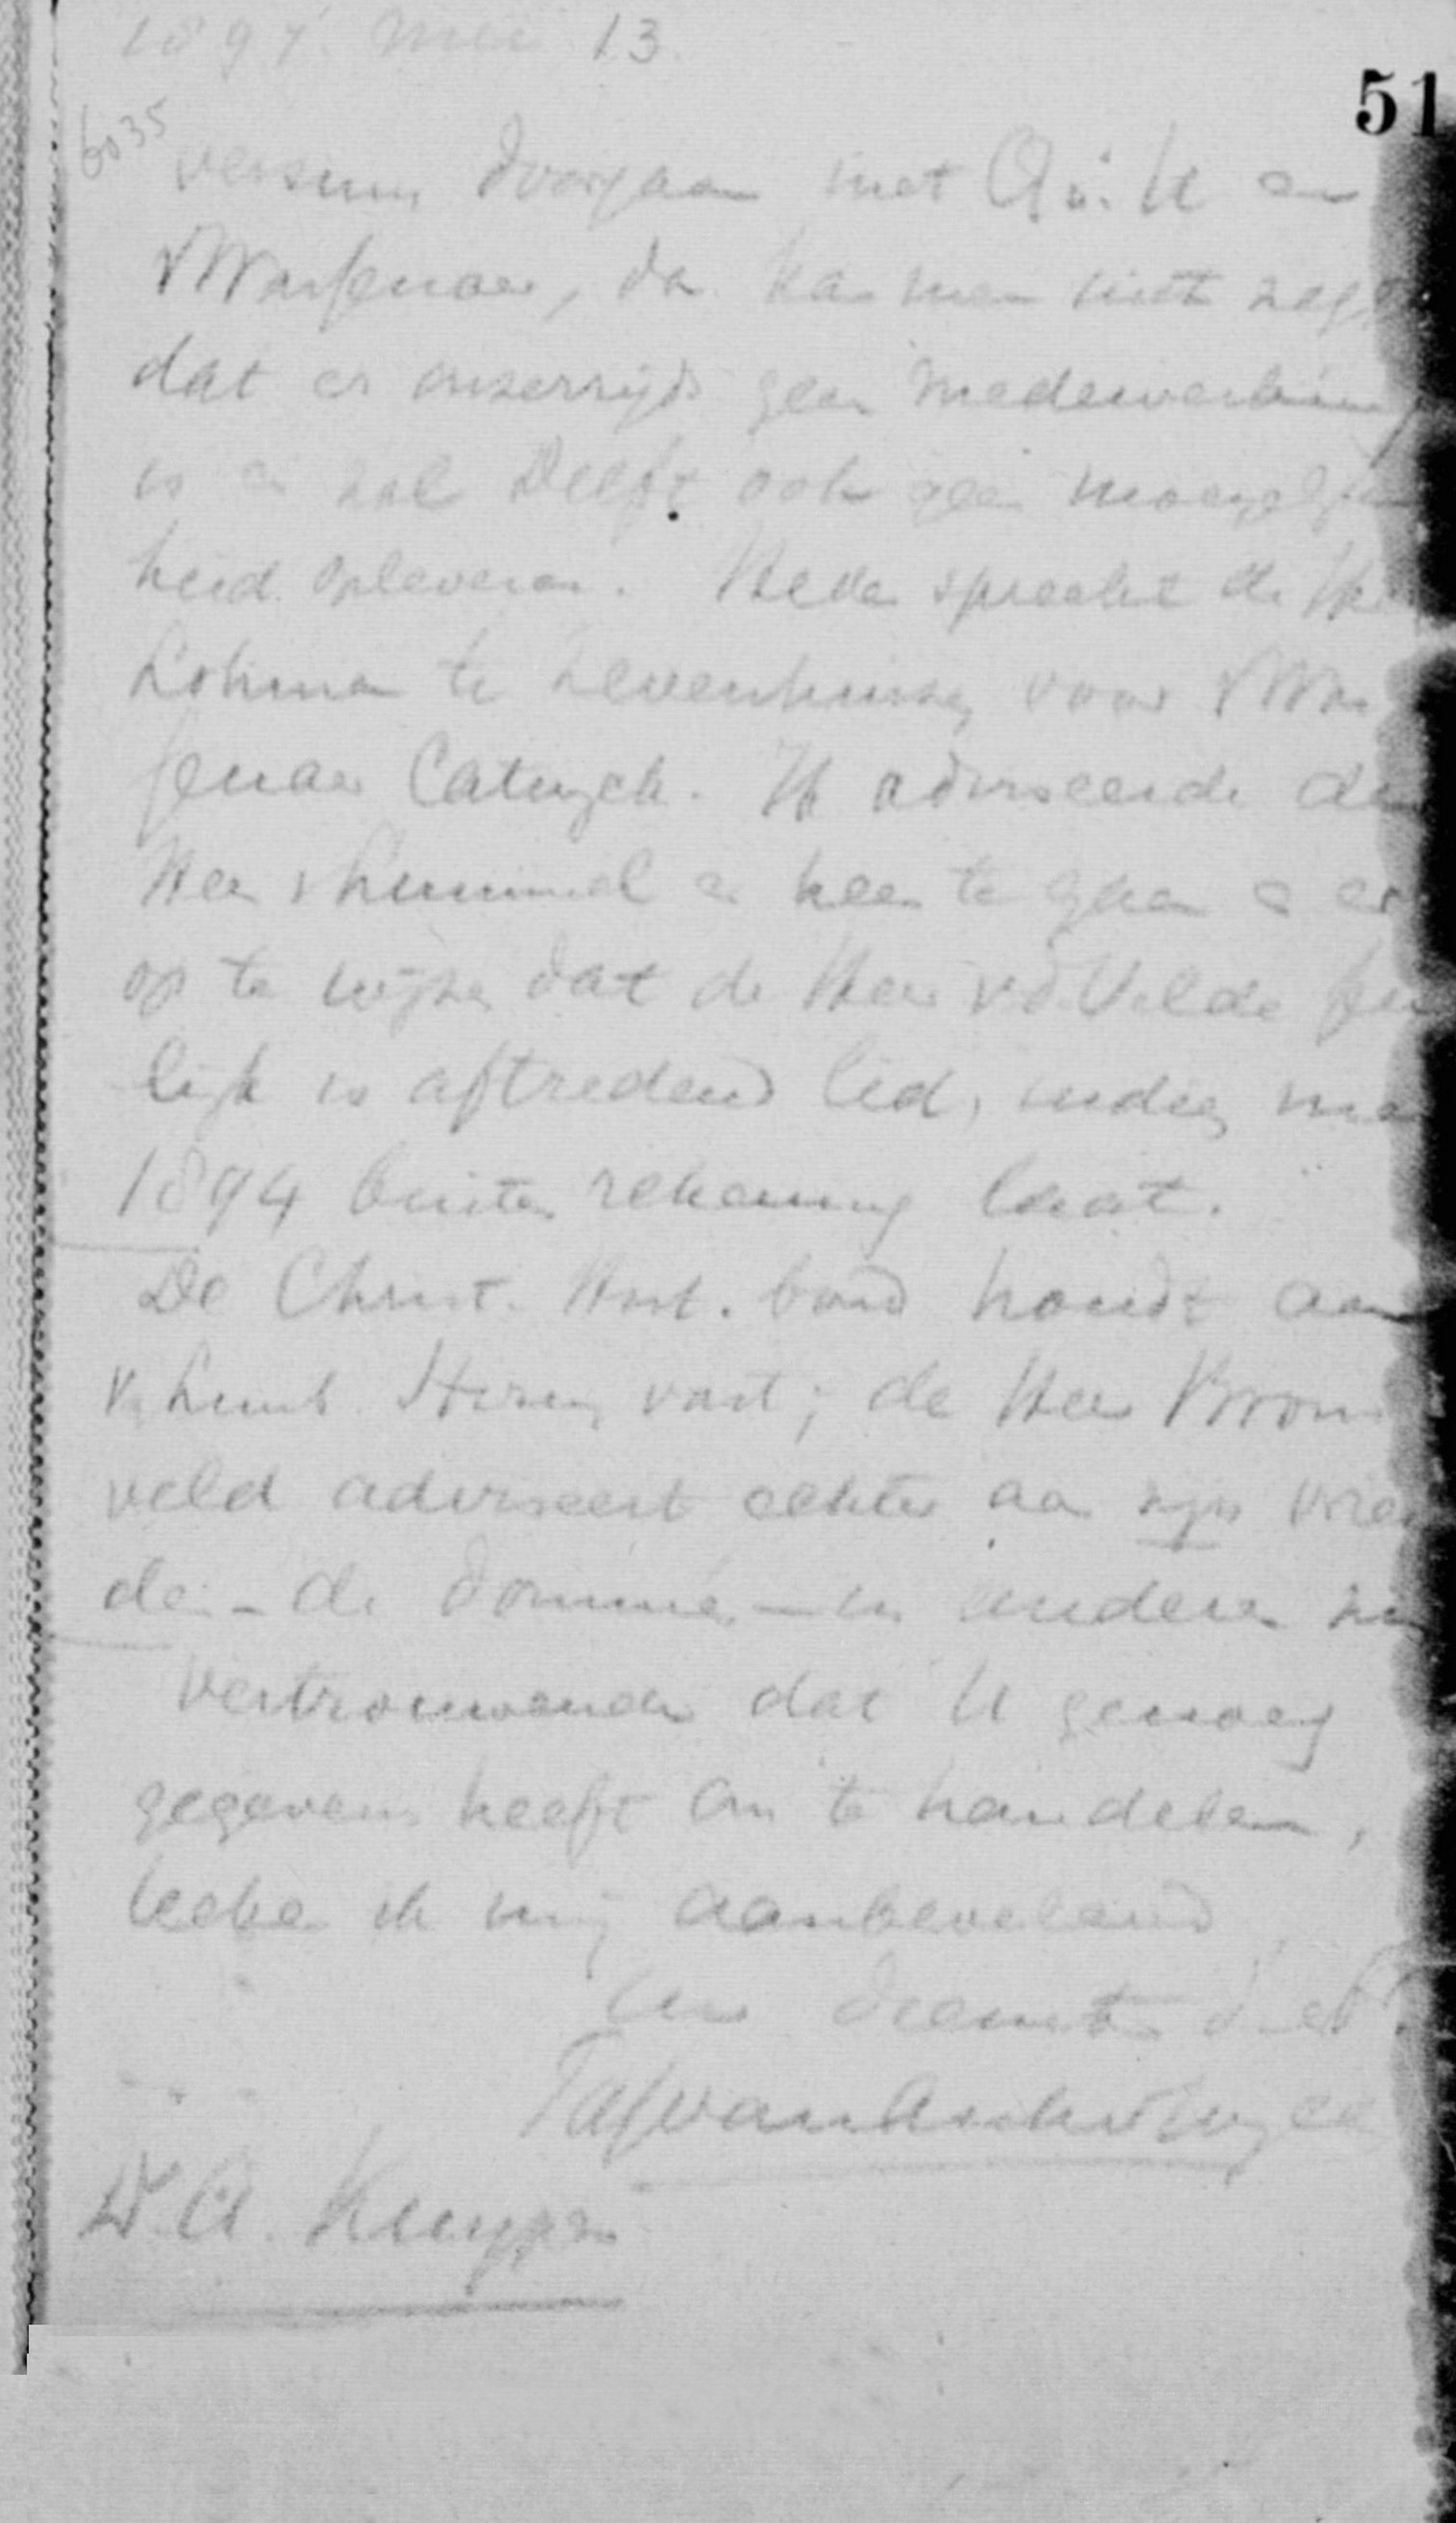 1897 Mei 13.
51
6035
versum doorgaan met Qu. U en
vWassenaer, dan kan men niet zegg
dat er onzerzijds geen medewerking
is en zal Delft ook geen moeyelyk
heid opleveren. Heden spreekt de Hr
Lohman te Zevenhuizen voor vWas
senaer Catwyck. Ik adviseerde den
Heer vLummel er heen te gaan en er
op te wijzen dat de Heer vd. Velde
lijk is aftredend lid, indien men
1894 buiten rekening laat.
De Christ. Hist. bond houdt aan
v. Limb. Stirum vast; de Heer Brons
veld adviseert echter aan zijn vrien
den - de dominé's - in anderen zin
Vertrouwende dat U genoeg
gegevens heeft om te handelen,
teeken ik mij aanbevelend
Uw dienstw.
Dr. A. Kuyper